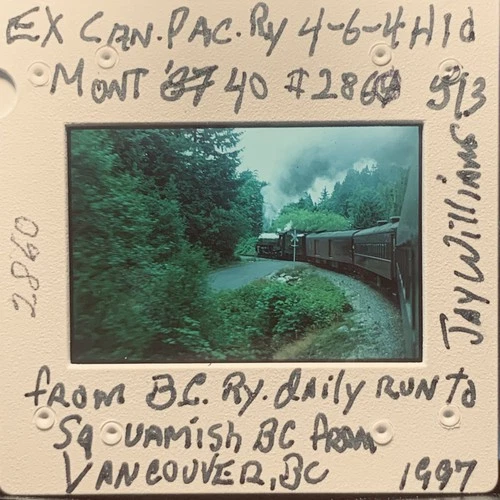 EX CAN. PAC. Ry 4-6-4 H1d
MONT '37 40 #2860 5/3
Jay Williams
2860
from BC. Ry. daily RUN to
Squamish BC from
VANCOUVER, BC 1997